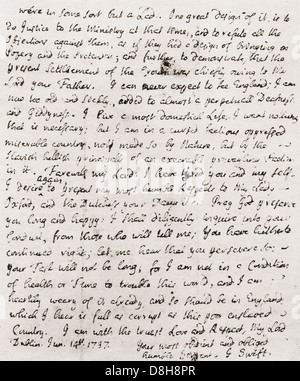 were in some sort but a Lad. One great design of it, is to
do Justice to the Ministry at that time, and to refute all the
objections against them, as if they had a design of bringing in
Popery and the Pretender; and further to demonstrate, that the
present Settlement of the Crown was chiefly owing to my
Lord your Father. I can never expect to see England; I am
now too old and sickly, added to almost a perpetual Deafness
and Giddyness. I live a most domestick Life. I want nothing
that is necessary; but I am in a cursed factious oppressed
miserable country, not made so by Nature, but by the
Slavish hellish principles of an execrable prevailing Faction
in it. Farewell my Lord. I have tired you and my self.
I desire again to present my most humble Respects to My Lady
Oxford, and the Dutchess your Daughter. Pray God preserve
you long and happy. I shall diligently inquire into your
Conduct, from those who will tell me. You have hitherto
continued right; let me hear that you persevere so.
Your Task will not be long, for I am not in a Condition
of health or Time to trouble this world, and I am
heartily weary of it already, and so should be in England
which I hear is full as corrupt as this poor enslaved
Country. I am with the truest Love and Respect, My Lord
Dublin. Jun. 14th 1737. Your most obedient and obliged
humble
J. Swift.
a
alamy
D8H8PR